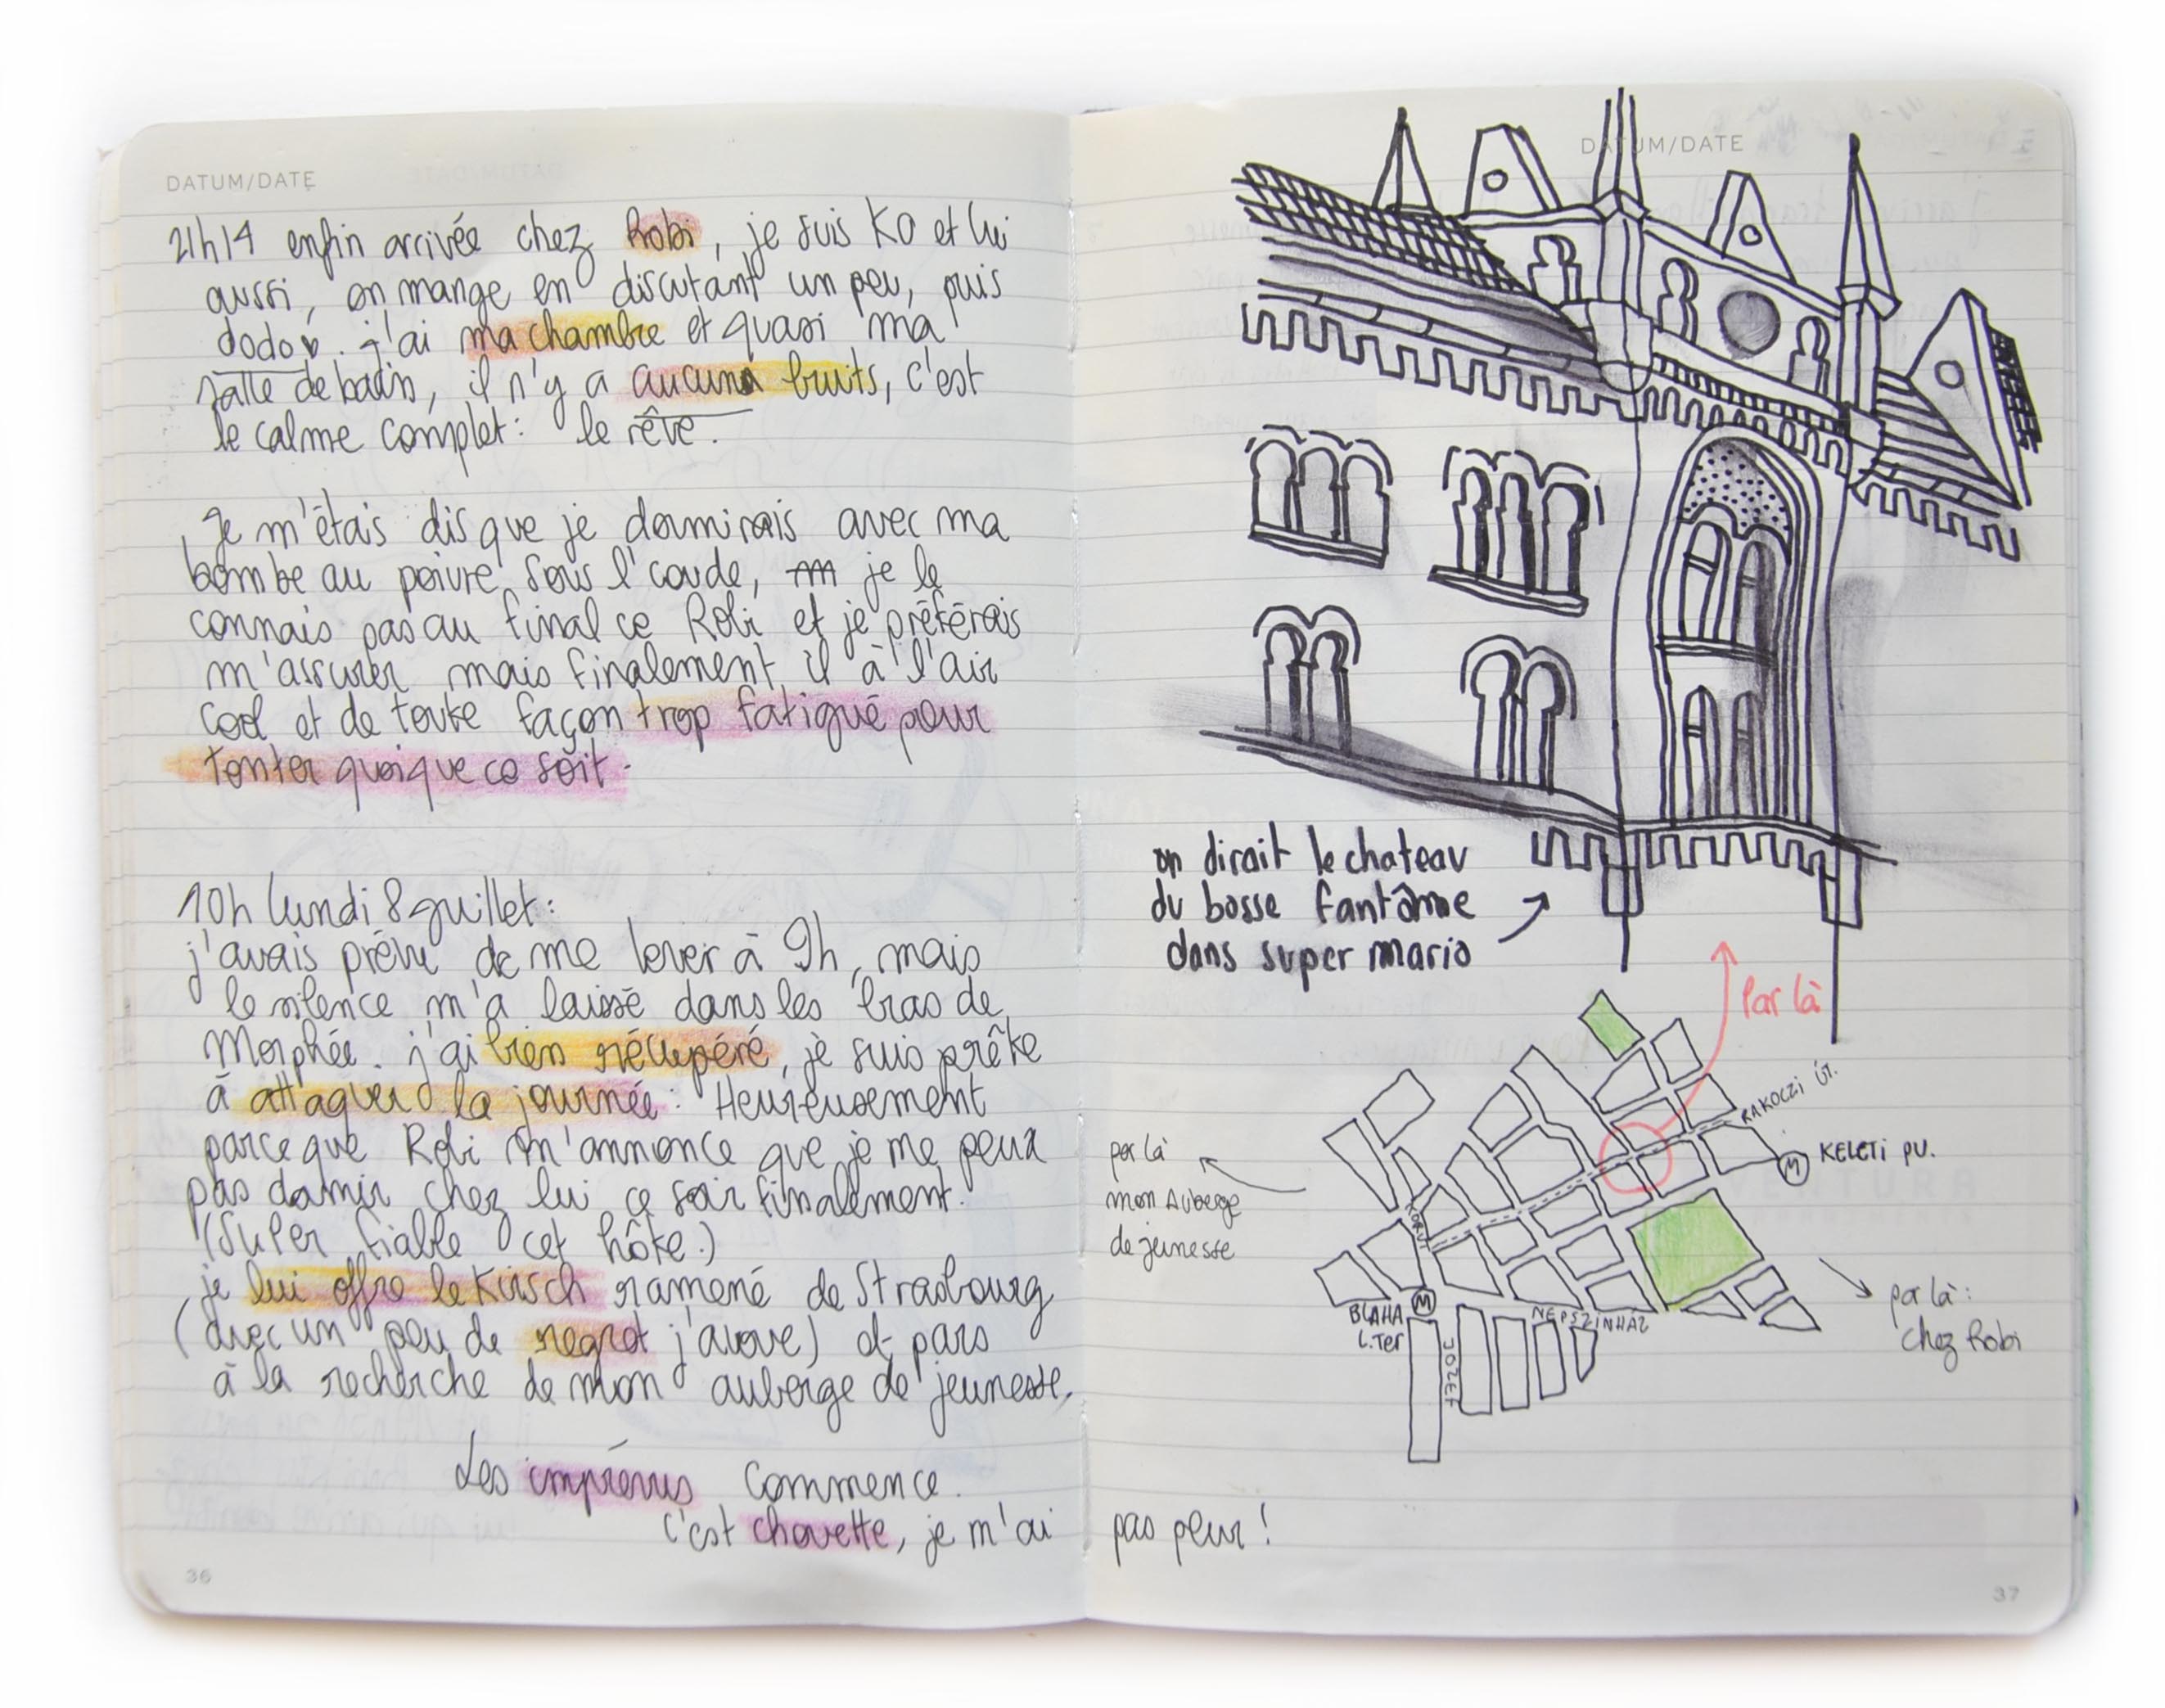 DATUM/DATE
21h14 enfin arrivée chez Robi, je suis KO et lui
aussi, on mange en discutant un peu, puis
dodo. j'ai ma chambre et quasi ma
salle de bain, il n'y a aucuns bruits, c'est
le calme complet: le rêve.
Je m'étais dis que je dormirais avec ma
bombe au poivre sous l'coude, je le
connais pas au final ce Robi et je préférais
m'assurer mais finalement il à l'air
cool et de toute façon trop fatigué pour
tenter quoique ce soit.
10h lundi 8 juillet:
j'avais prévu de me lever à 9h, mais
le silence m'a laissé dans les bras de
Morphée. j'ai bien récupéré, je suis prête
à attaquer la journée: Heureusement
parceque Robi m'annonce que je me peux
pas dormir chez lui ce soir finalement.
(Super fiable cet hôte.)
je lui offre le Kirsch ramené de Strasbourg
(avec un peu de regret j'avoue) et pars
à la recherche de mon auberge de jeunesse.
Les imprévus commence.
c'est chouette, je m'ai pas peur!
36
DATUM/DATE
on dirait le chateau
du bosse fantôme
dans super mario
Par là
RAKOCZI ÚT.
KELETI PU.
M
par là
mon Auberge
de jeunesse
KORUT
BLAHA
L.TER
M
NEPSZINHÁZ
JOZSEF
par là:
chez Robi
37